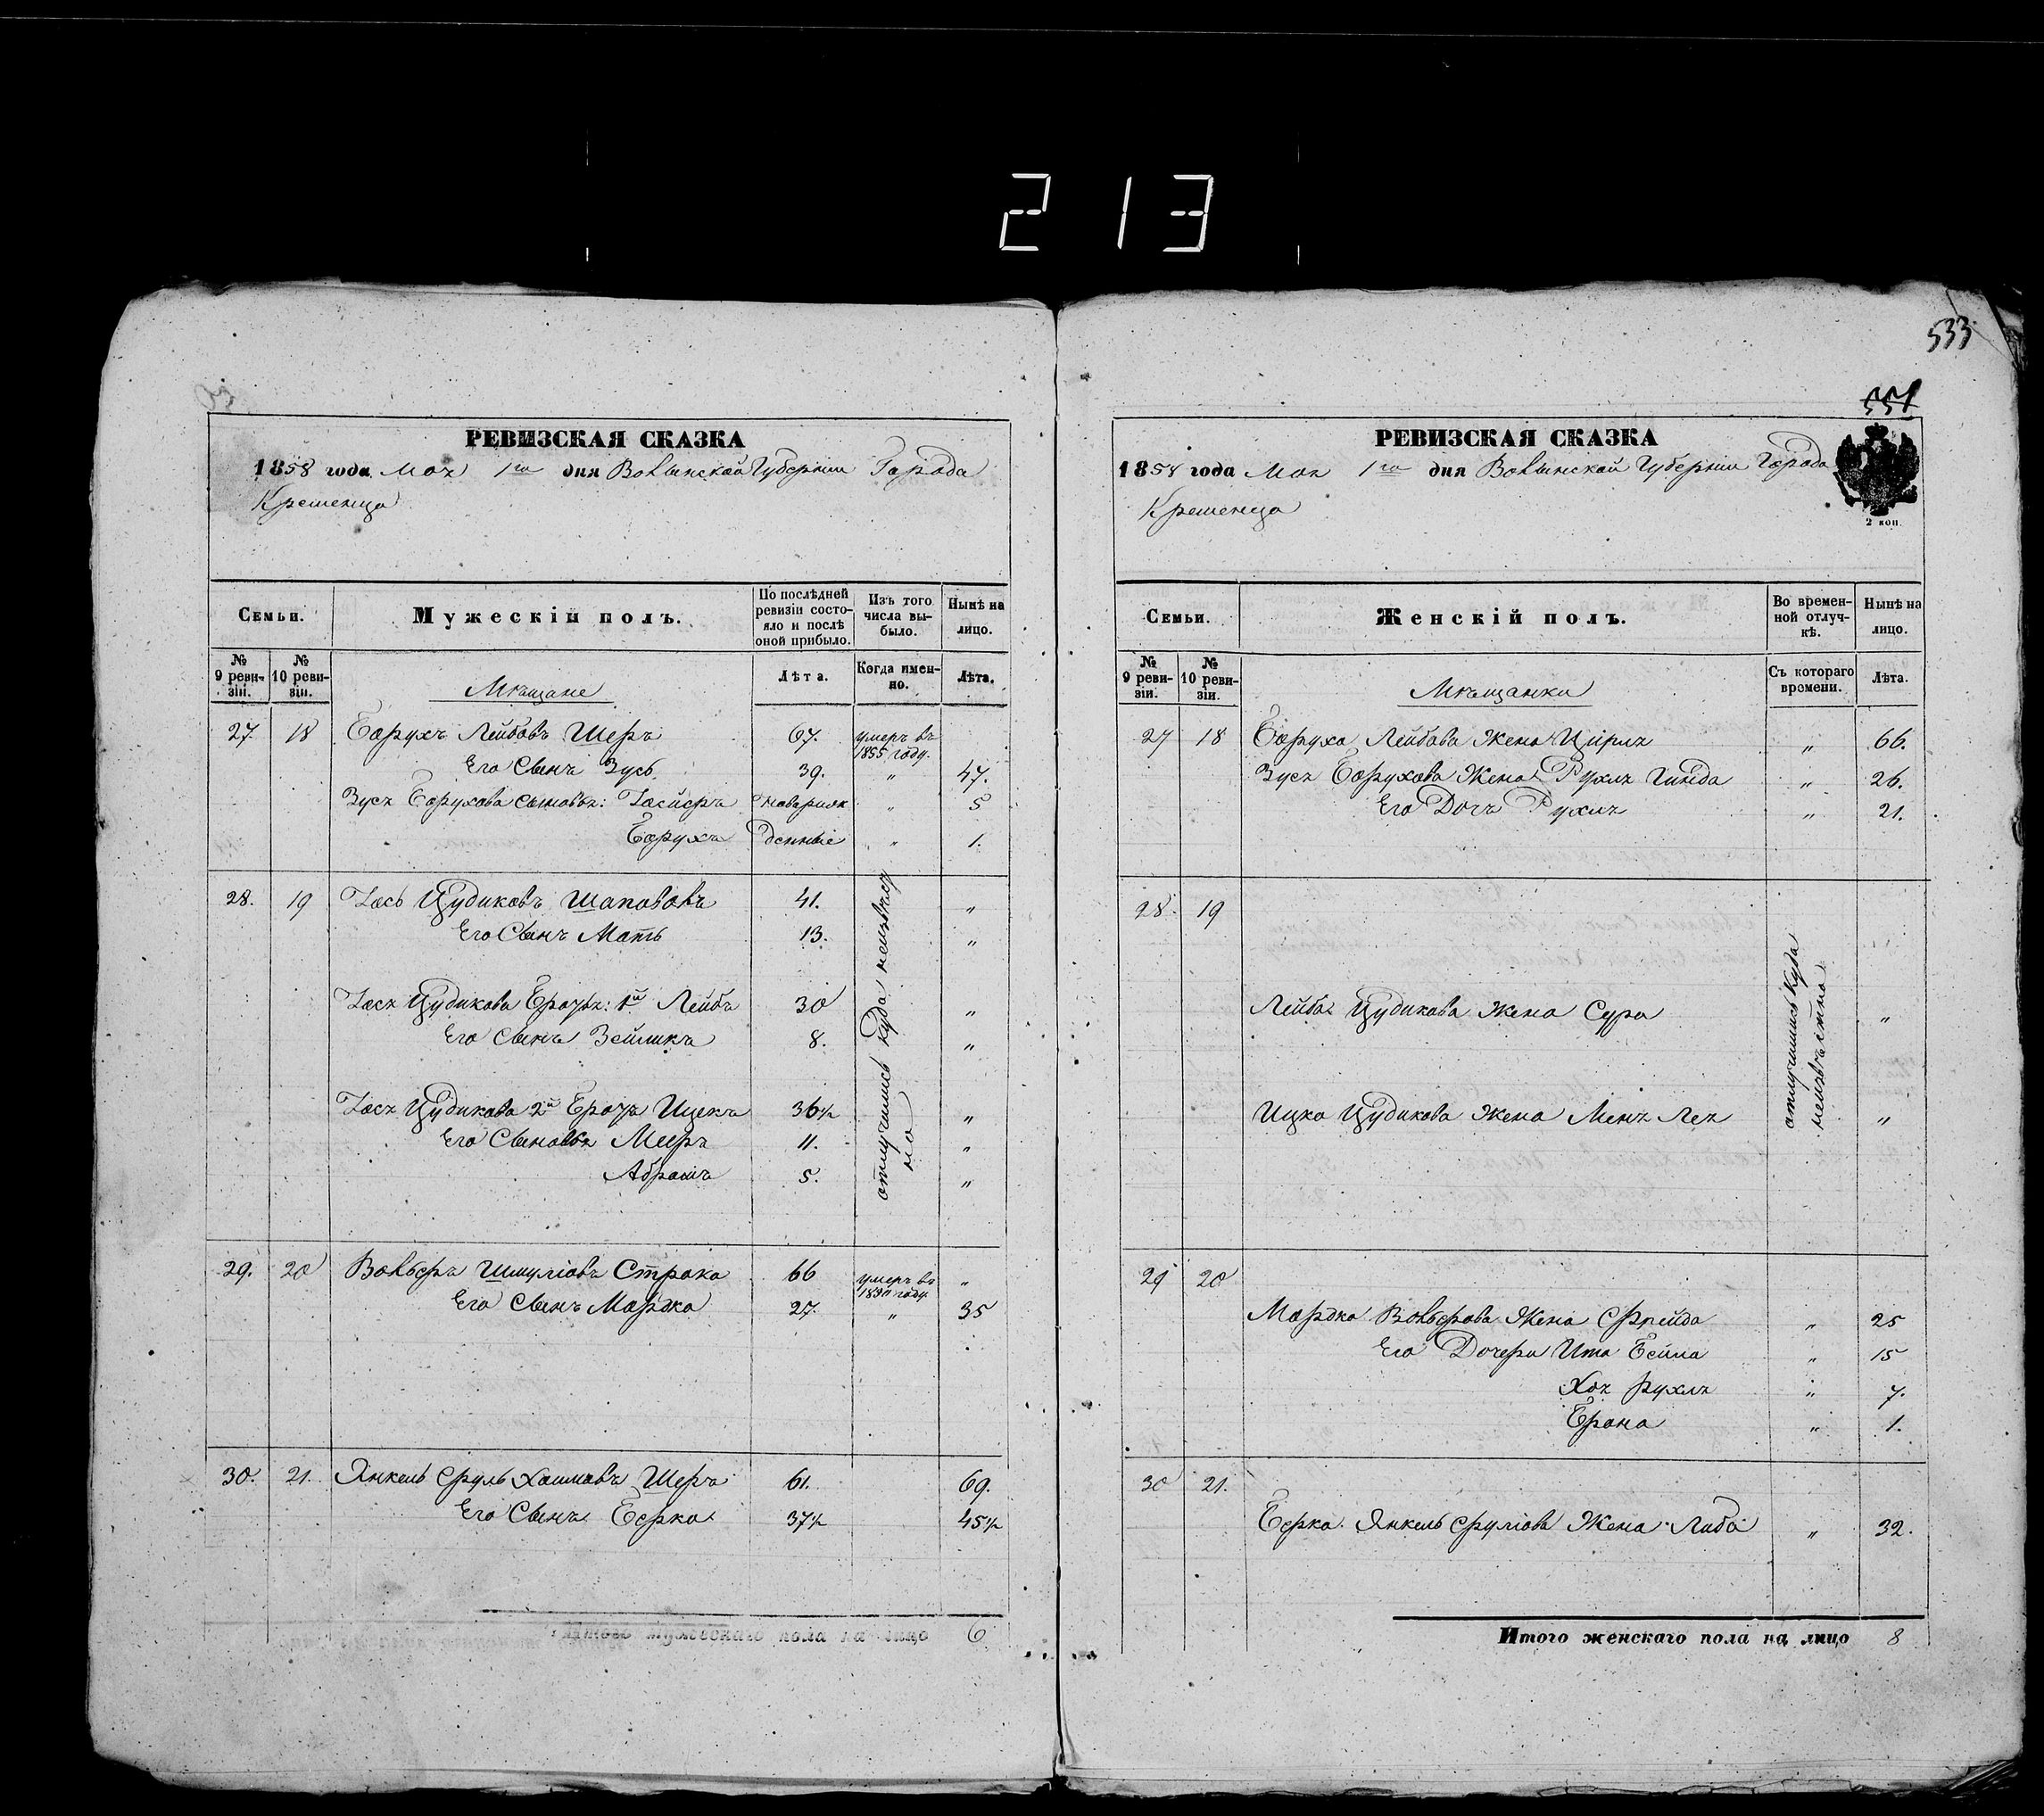 213
533
551
РЕВИЗСКАЯ СКАЗКА
1858 года Мая 1го дня Волынской Губерніи Города
Кременца
Семьи.
Мужескій полъ.
По послѣдней ревизіи состояло и послѣ оной прибыло.
Изъ того числа выбыло.
Нынѣ на лицо.
№ 9 ревизіи.
№ 10 ревизіи.
Мѣщане
Лѣта.
Когда именно.
Лѣта.
27 18 Борухъ Лейбовъ Шеръ 67. умеръ въ 1855 году.
Его Сынъ Зусь 39. " 47.
Зуся Борухова Сыновья: новорож " 5
Борухъ денные " 1.
28. 19 Іось Цудиковъ 41. "
Его Сынъ Мать 13. "
Іося Цудикова Братья: 1й Лейба 30 "
Его Сынъ Зейликъ 8. "
Іося Цудикова 2й Братъ Ицекъ 36½ "
Его Сыновья Мееръ 11. "
Абрамъ 5. "
отлучились куда неизвѣстно
29. 20 Вольфъ Шмуліовъ Страка 66 умеръ въ году. "
Его Сынъ Мордко 27. " 35
30. 21. Янкель Сруль Хаимовъ Шеръ 61. 69.
Его Сынъ Берко 37½ 45½
Итого мужескаго пола на лицо 6
РЕВИЗСКАЯ СКАЗКА
1858 года Мая 1го дня Волынской Губерніи Города
Кременца
2 коп.
Семьи.
Женскій полъ.
Во временной отлучкѣ.
Нынѣ на лицо.
№ 9 ревизіи.
№ 10 ревизіи.
Мѣщанки
Съ котораго времени.
Лѣта.
27 18 Боруха Лейбова Жена Цирля " 66.
Зуся Борухова Жена Рухля Гинда " 26.
Его Дочь Рухля " 21.
28. 19
Лейба Цудикова Жена Сура "
Ицка Цудикова Жена Меня Лея "
отлучились куда неизвѣстно
29 20
Мордка Вольфова Жена Фрейда " 25
Его Дочери Ита Бейла " 15
Хая Рухля " 7.
Брана " 1.
30 21.
Берка Янкель Сруліова Жена Либа " 32.
Итого женскаго пола на лицо 8